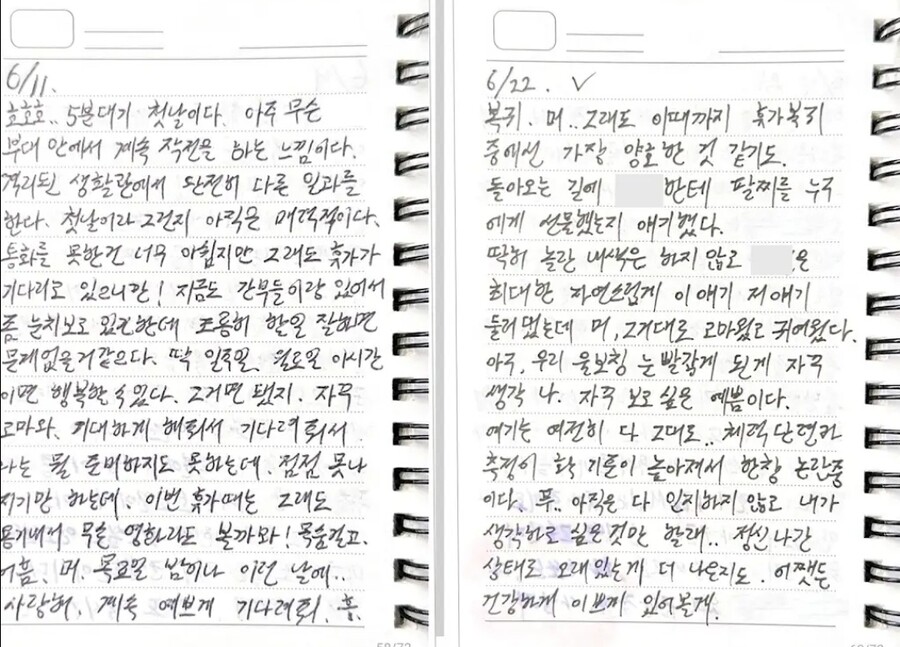 6/11.
호호호.. 5분대기 첫날이다. 아주 무슨
부대 안에서 계속 작전을 하는 느낌이다.
격리된 생활관에서 완전히 다른 일과를
한다. 첫날이라 그런지 아직은 매력적이다.
통화를 못한건 너무 아쉽지만 그래도 휴가가
기다리고 있으니깐! 지금도 간부들이랑 있어서
좀 눈치보고 있긴한데 조용히 할일 잘하면
문제없을거같은다. 딱 일주일, 월요일 이시간
이면 행복할 수 있다. 그거면 됐지. 자꾸
고마와. 기대하게 해줘서 기다려줘서.
나는 뭘 준비하지도 못하는데. 점점 못나
지기만 하는데. 이번 휴가때는 그래도
용기내서 무슨 영화라도 볼까봐! 목숨걸고.
어흠. 머. 목요일 밤이나 이런 날에..
사랑해. 계속 예쁘게 기다려줘. 흠.
6/22. ✓
복귀. 머.. 그래도 이때까지 휴가복귀
중에선 가장 양호한 것 같기도.
돌아오는 길에 한테 팔찌를 누구
에게 선물했는지 얘기했다.
딱히 놀란 내색은 하지 않고 은
최대한 자연스럽게 이 얘기 저 얘기
둘러댔는데 머, 그거대로 고마웠고 귀여웠다.
아주, 우리 울보칭 눈 빨갛게 된게 자꾸
생각 나. 자꾸 보고싶은 예쁨이다.
여기는 여전히 다 그대로.. 체력단련과
측정이 확 기준이 높아져서 한창 논란중
이다. 푸.. 아직은 다 인지하지 않고 내가
생각하고 싶은것만 할래.. 정신나간
상태로 오래있는게 더 나은지도. 어쨋든
건강하게 이쁘게 있어볼게.